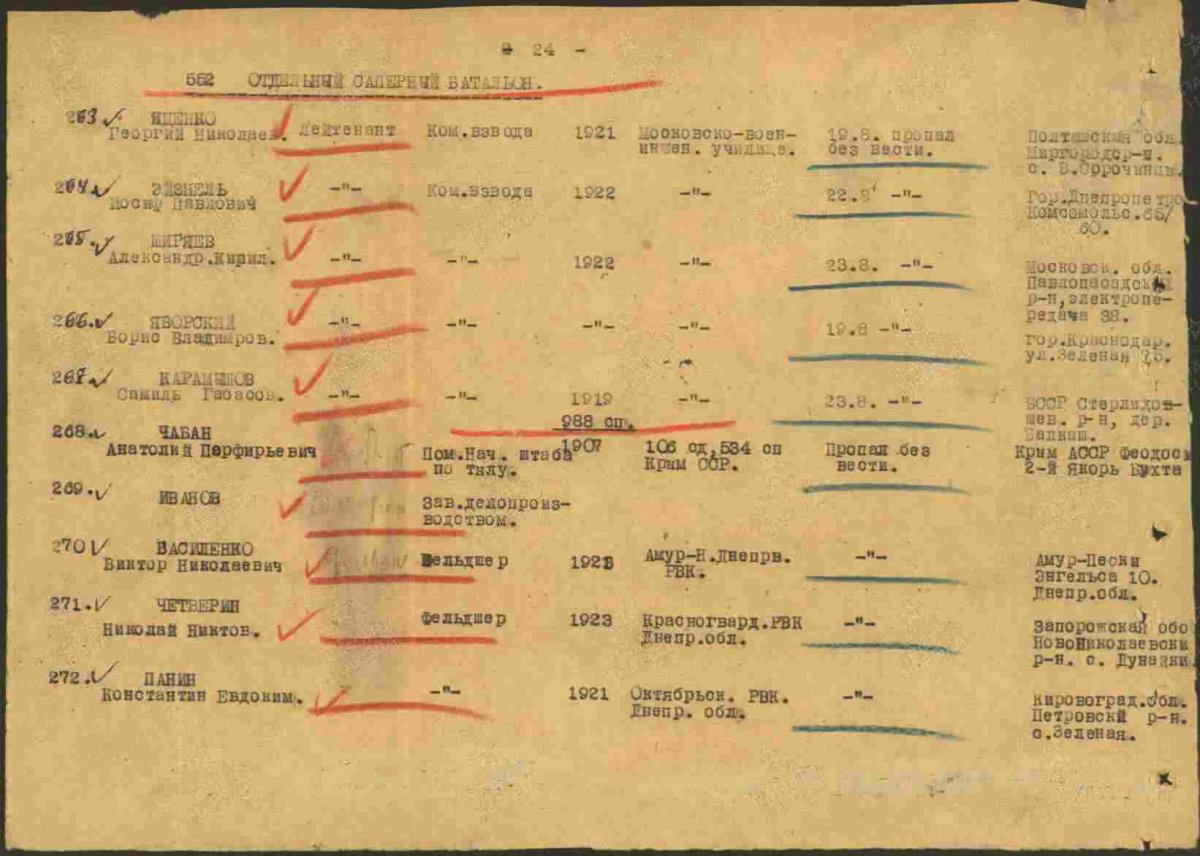 24 -
552 ОТДЕЛЬНЫЙ САПЕРНЫЙ БАТАЛЬОН.
263 ЯЩЕНКО
Георгий Николаев. Лейтенант Ком.взвода 1921 Московско-воен- 19.8. пропал Полтавская обл.
инжен. училище. без вести. Миргородср-н.
с. В.Сорочинцы.
264 ЭЙЗНЕЛЬ -"- Ком.взвода 1922 -"- 22.8 -"- Гор.Днепропетро
Иосиф Павлович Комсомольс.65/
60.
265. ШИРЯЕВ
Александр.Кирил. -"- -"- 1922 -"- 23.8. -"- Московск. обл.
Павлопасадский
р-н,электропе-
редача 38.
266. ЯВОРСКИЙ -"- -"- -"- -"- 19.8 -"-
Борис Владимров. гор.Краснодар.
ул.Зеленая 75.
267 КАРАМЫШОВ
Самиль Габасов. -"- -"- 1919 -"- 23.8. -"- БССР Стерлидов-
шев. р-н, дер.
988 сп.
268. ЧАБАН
Анатолий Перфирьевич Пом.Нач. штаба 1907 106 сд,534 сп Пропал без Крим АССР Феодоси
по тылу. Крим ССР. вести. 2-й Якорь Бухта
269. ИВАНОВ Зав.делопроиз-
водством.
270 ВАСИЛЕНКО
Виктор Николаевич Фельдшер 1923 Амур-Н.Днепрв. -"- Амур-Пески
РВК. Энгельса 10.
Днепр.обл.
271. ЧЕТВЕРИН
Николай Никтов. Фельдшер 1923 Красногвард.РВК -"- Запорожская обо
Днепр.обл. НовоНиколаевски
р-н. с. Дунайки
272. ПАНИН
Константин Евдоким. -"- 1921 Октябрьск. РВК. -"- Кировоград.обл.
Днепр. обл. Петровскй р-н.
с.Зеленая.